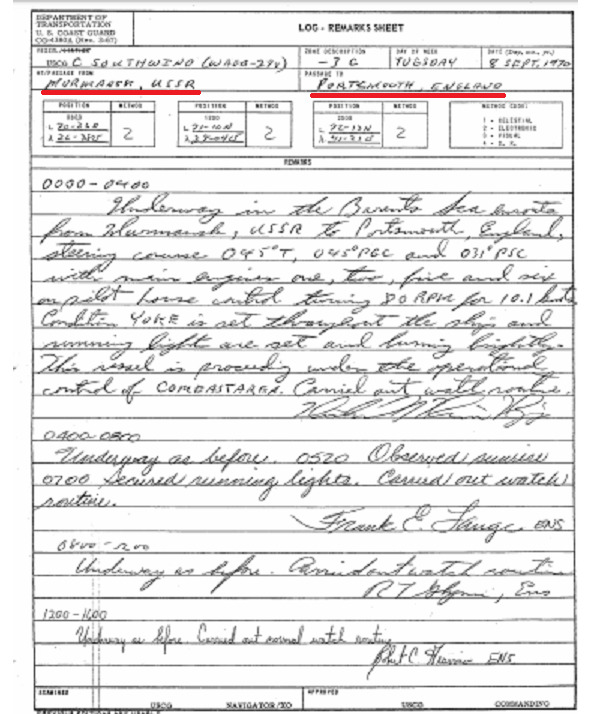 DEPARTMENT OF
TRANSPORTATION
U. S. COAST GUARD
LOG - REMARKS SHEET
USCGC SOUTHWIND (WAGB-280)
ZONE DESCRIPTION
-3 C
DAY OF WEEK
TUESDAY
DATE
8 SEPT. 1970
AT/PASSAGE FROM
MURMANSK, USSR
PASSAGE TO
PORTSMOUTH, ENGLAND
POSITION METHOD
POSITION METHOD
POSITION METHOD
METHOD CODE:
0800
1200
2000
2
2
2
1 - CELESTIAL
2 - ELECTRONIC
3 - VISUAL
4 - D. R.
REMARKS
0000-0400
Underway in the Barents Sea enroute
from Murmansk, USSR to Portsmouth, England,
steering course 045°T, 045°PGC and 031°PSC
with main engines one, two, five and six
on pilot house control turning 80 RPM for 10.1 knots.
Condition YOKE is set throughout the ship and
running lights are set and burning brightly.
This vessel is proceeding under the operational
control of COMEASTAREA. Carried out watch routine.
0400-0800
Underway as before. 0520 Observed sunrise
0700 Secured running lights. Carried out watch
routine.
Frank E. Lange ENS
0800-1200
Underway as before. Carried out watch routine
Ens
1200-1600
Underway as before. Carried out normal watch routine
Robert C. ENS
EXAMINED
USCG NAVIGATOR/XO
APPROVED
USCG COMMANDING